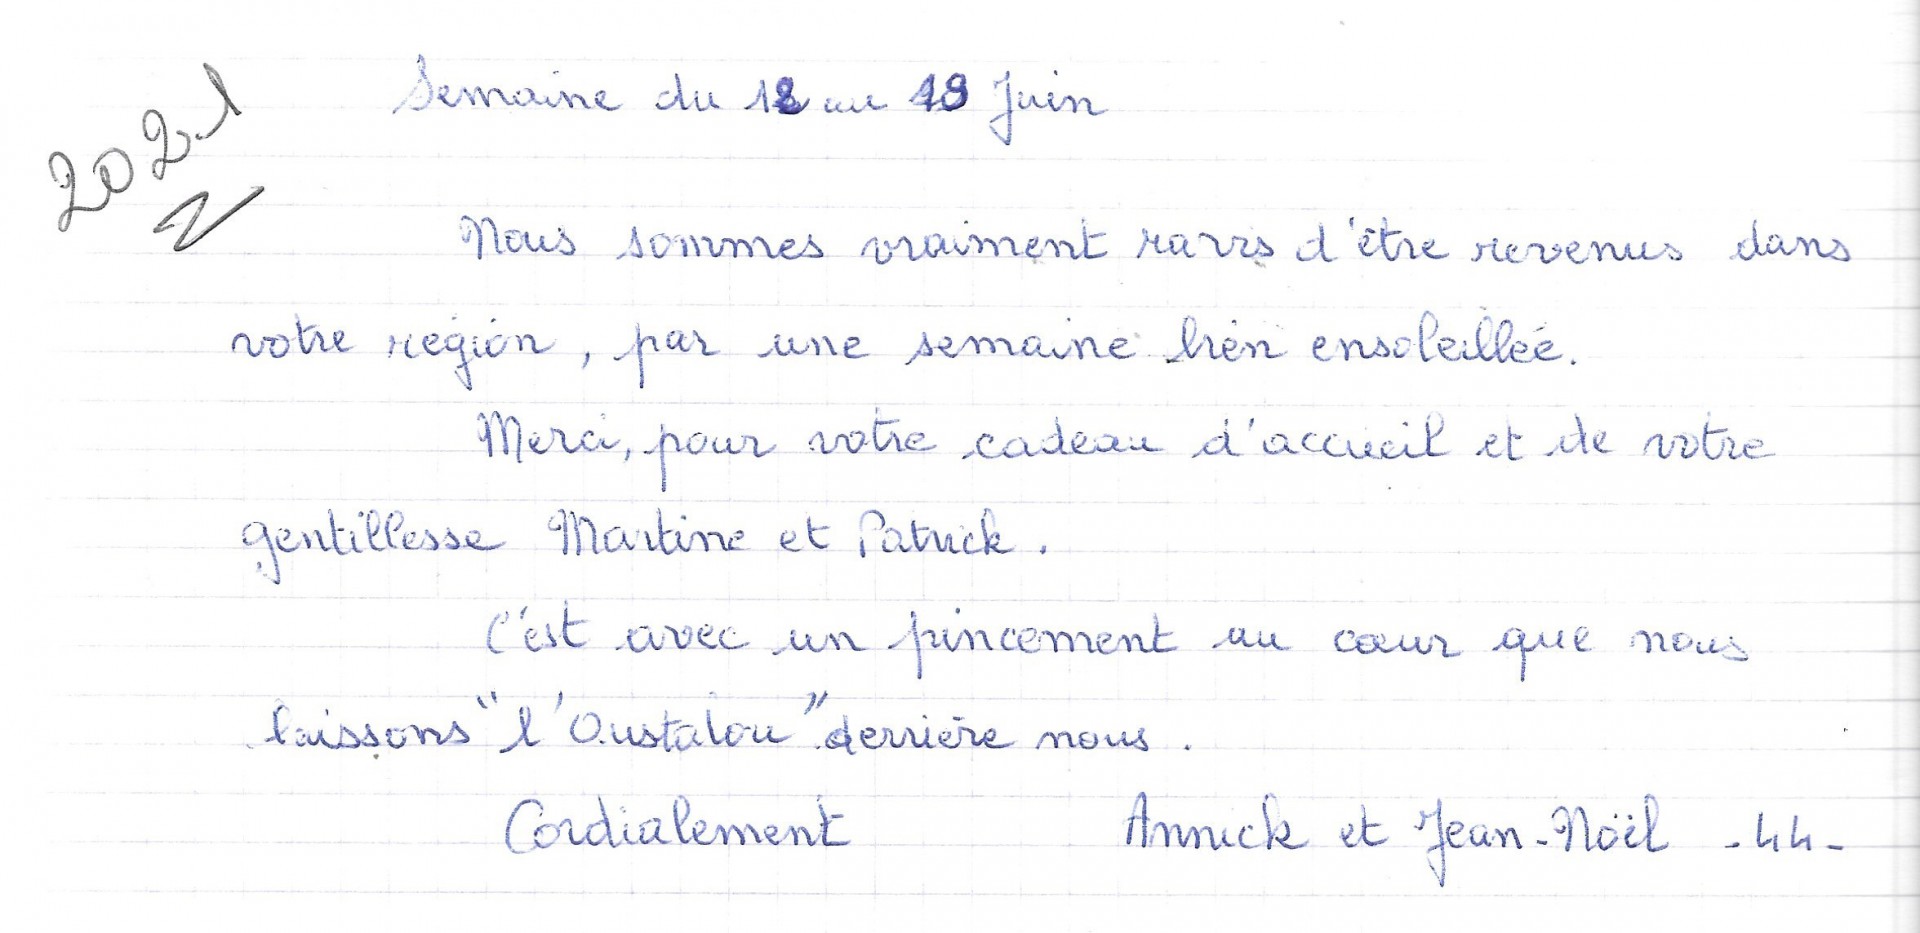 2021
Semaine du 12 au 19 Juin
Nous sommes vraiment ravis d'être revenus dans
votre région, par une semaine bien ensoleillée.
Merci, pour votre cadeau d'accueil et de votre
gentillesse Martine et Patrick.
C'est avec un pincement au cœur que nous
laissons "l'Oustalou" derrière nous.
Cordialement Annick et Jean-Noël -44-